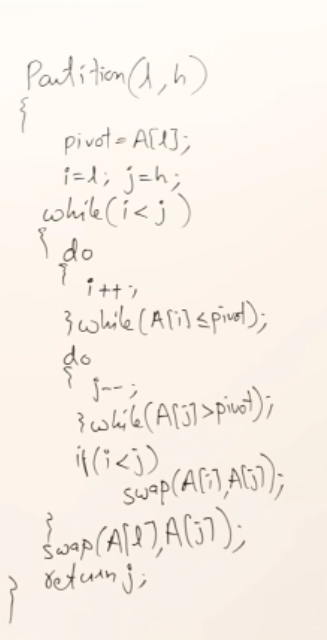 Partition(l,h)
{
pivot=A[l];
i=l; j=h;
while(i<j)
{ do
{
i++;
}while(A[i]≤pivot);
do
{
j--;
}while(A[j]>pivot);
if(i<j)
swap(A[i],A[j]);
}
swap(A[l],A[j]);
return j;
}